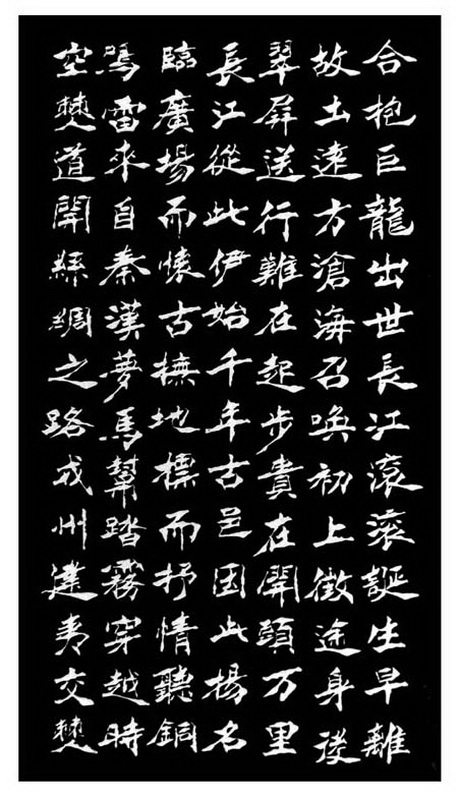 合抱巨龍出世長江滾滾誕生早離
故土遠方滄海召喚初上徵途身後
翠屏送行難在起步貴在開頭万里
長江從此伊始千年古邑因此揚名
臨廣場而懷古撫地標而抒情聽銅
雷來自秦漢夢馬幫踏霧穿越時
空僰道開絲綢之路成州達夷交僰